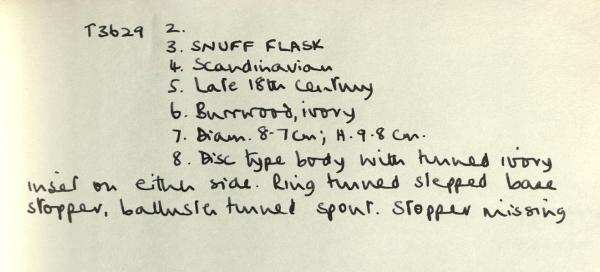 T3629 2.
3. SNUFF FLASK
4. Scandinavian
5. Late 18th century
6. Burrwood, ivory
7. Diam. 8.7cm; H. 9.8 cm.
8. Disc type body with turned ivory
inset on either side. Ring turned stepped base
stopper, balluster turned spout. Stopper missing